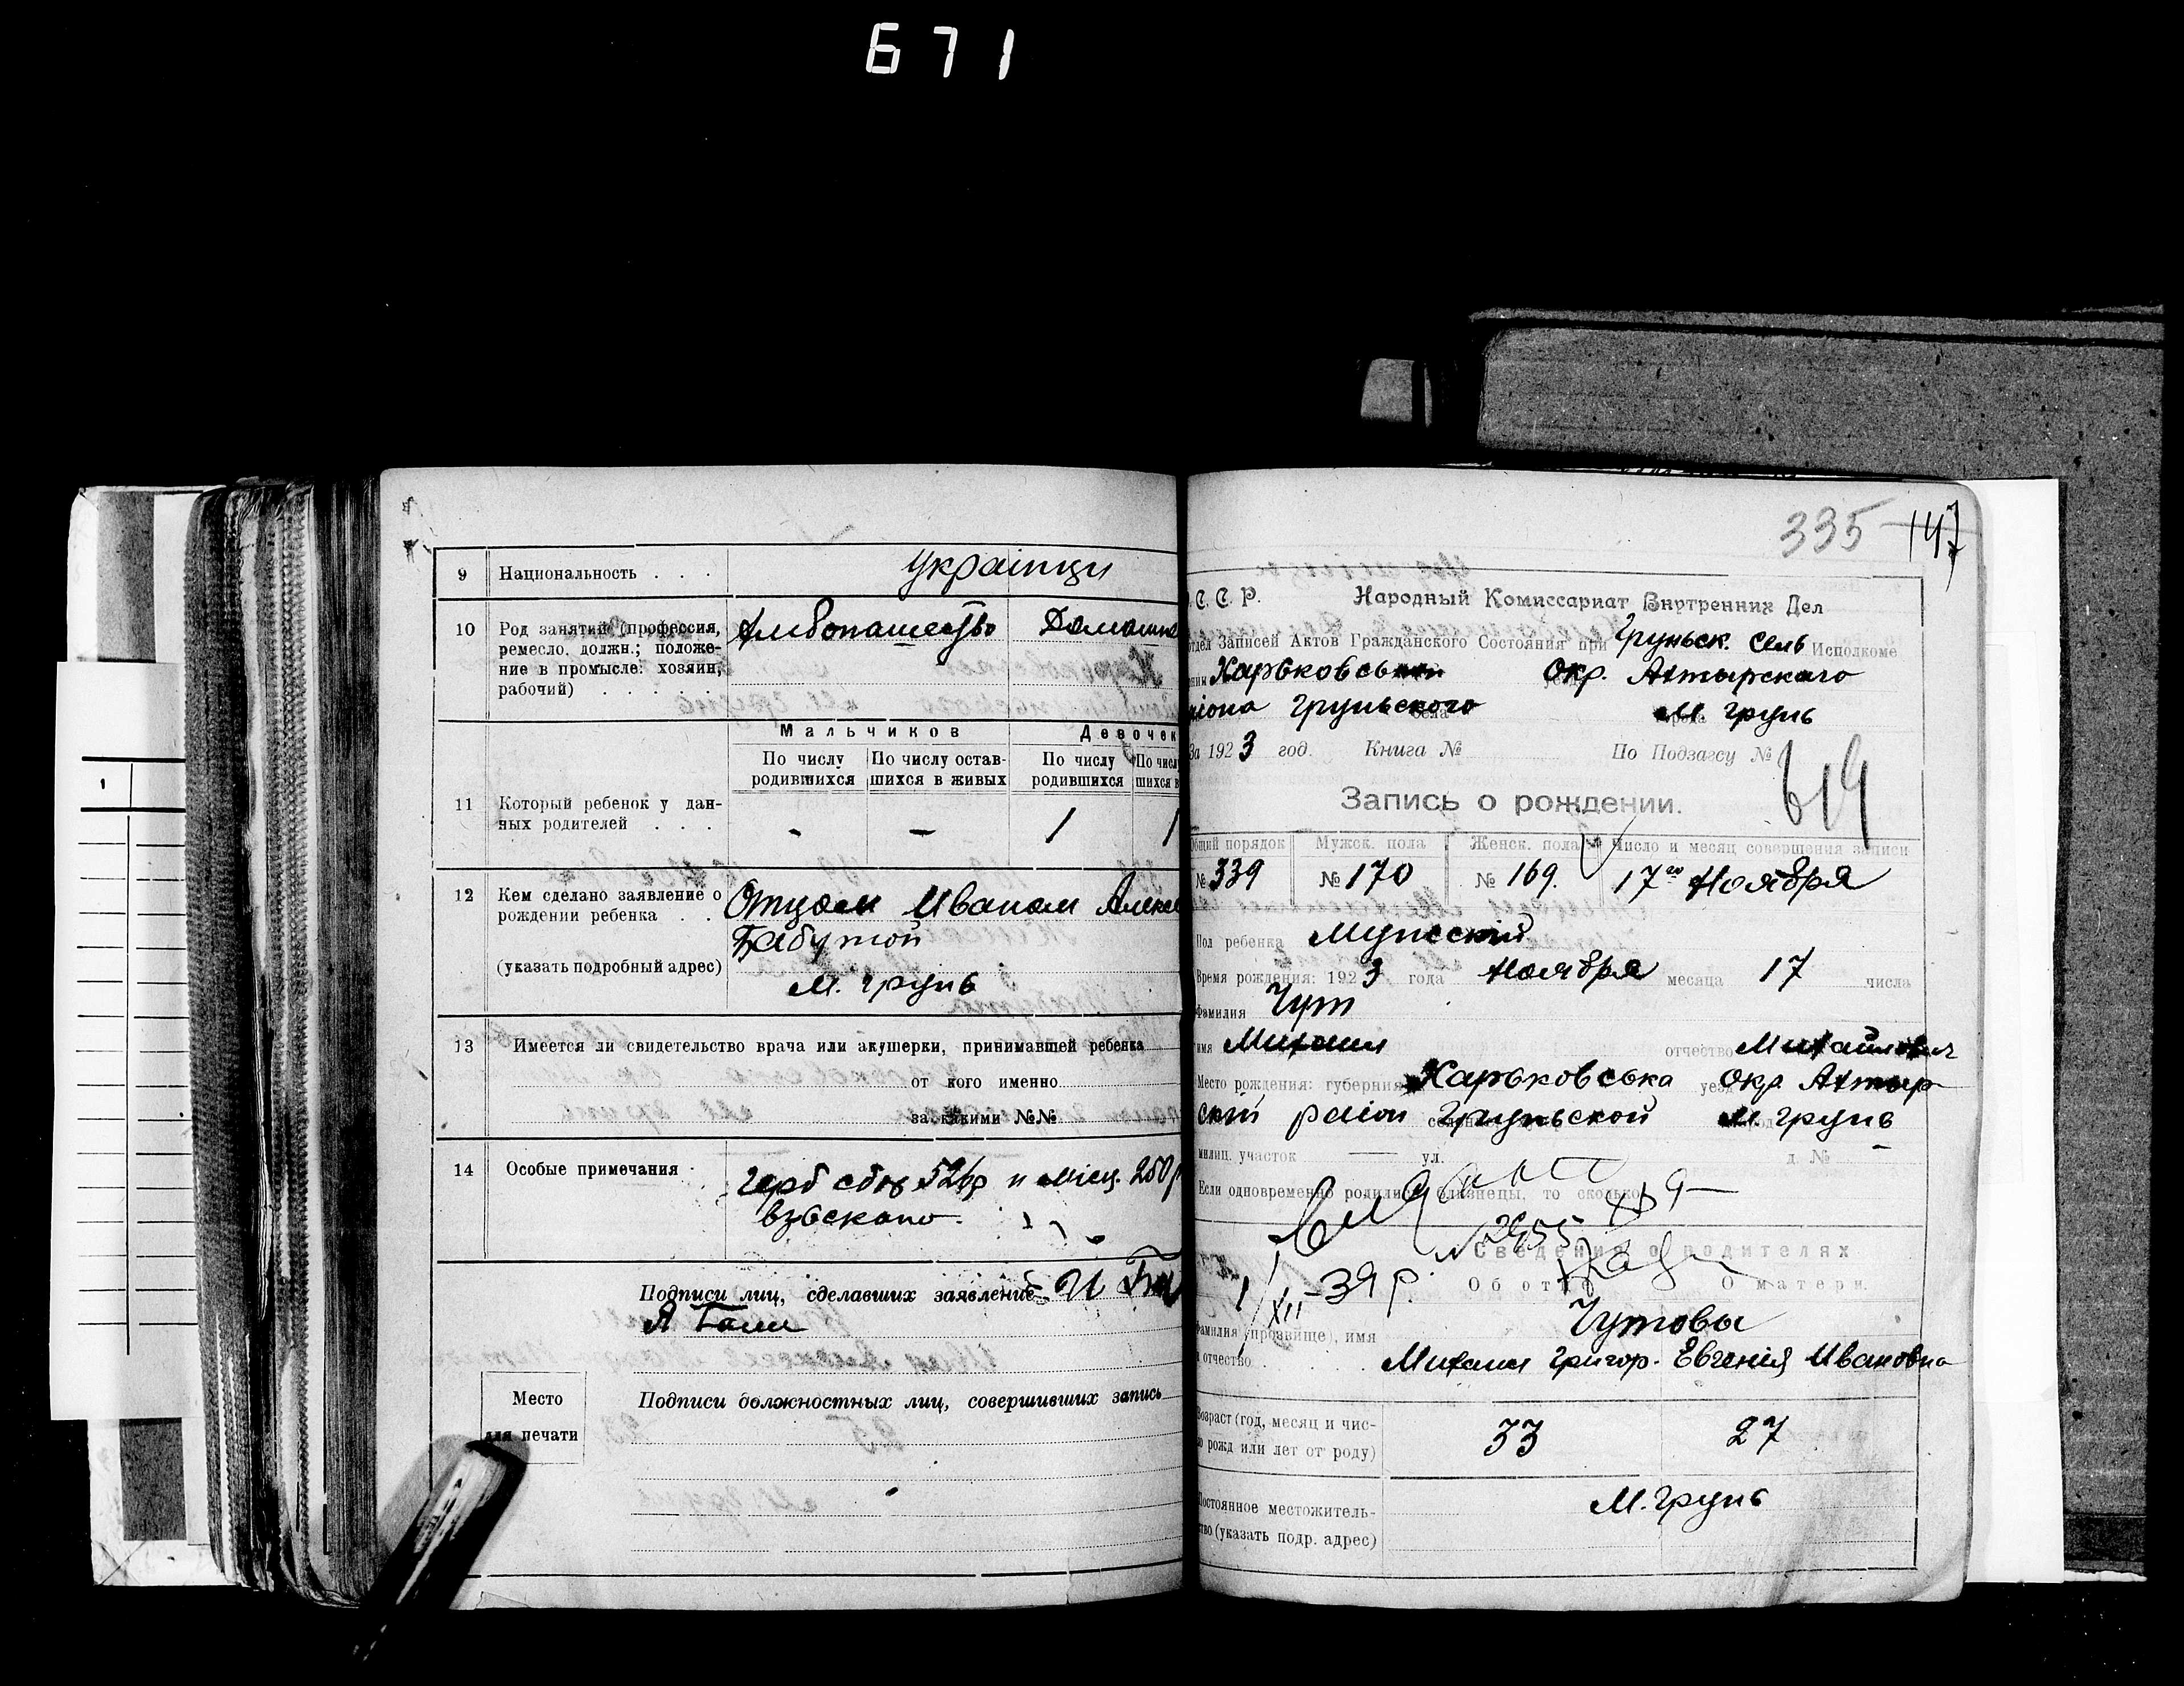 671
9 Национальность . . . Українци
10 Род занятий (профессия, ремесло, должн.; положение в промысле: хозяин, рабочий) . . . . .
Хлебопашество Домашн
Мальчиков Девочек
По числу родившихся По числу оставшихся в живых По числу родившихся По числ шихся в
11 Который ребенок у данных родителей . . . - - 1 1
12 Кем сделано заявление о рождении ребенка . .
Отцом Иваном Алексе
Бабутой
(указать подробный адрес)
М. Грунь
13 Имеется ли свидетельство врача или акушерки, принимавшей ребенка
от кого именно
за какими №№
14 Особые примечания
Герб сбор 526р и місц. 250р
взыскано.
Подписи лиц, сделавших заявление И
Я
Место для печати
Подписи должностных лиц, совершивших запись
335 147
.С.С.Р. Народный Комиссариат Внутренних Дел
отдел Записей Актов Гражданского Состояния при Груньск. Сель Исполкоме
нии Харьковськ Окр. Ахтырскаго
района Груньского села М. Грунь
За 1923 год. Книга № По Подзагсу № 619
Запись о рождении.
Общий порядок Мужск. пола Женск. пола Число и месяц совершения записи
№ 339 № 170 № 169. 17го Ноября
Пол ребенка Мужеский
Время рождения: 1923 года Ноября месяца 17 числа
Фамилия Чут
имя Михаил отчество Михайлович
Место рождения: губерния Харьковська уезд Окр Ахтыр-
скій район Груньской М Грунь
милиц. участок — ул. д. № -
Если одновременно родились близнецы, то сколько
№ 2955
Сведения о родителях
1/XII-39 р.
Об отце О матери
Чутовы
Фамилия (прозвище), имя и отчество . . . . .
Михаил Григор. Евгенія Ивановна
Возраст (год, месяц и число рожд или лет от роду) 33 27
Постоянное местожительство (указать подр. адрес)
М. Грунь